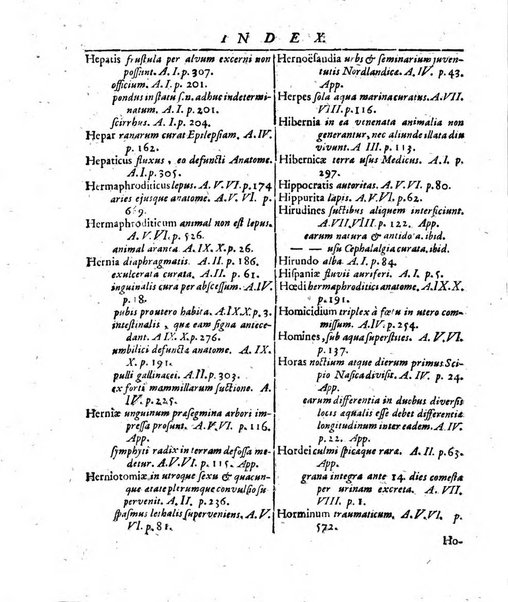 INDEX
Hepatis frustula per alvum excerni non
possunt. A. I. p. 307.
officium. A. I. p. 201.
pondus in statu s.n. adhuc indetermi-
natum. A. I. p. 201.
scirrhus. A. I. p. 204.
Hepar ranarum curat Epilepsiam. A. IV.
p. 162.
Hepaticus fluxus, eo defuncti Anatome.
A. I. p. 305.
Hermaphroditicus lepus. A. V. VI. p. 174
aries ejusque anatome. A. V. VI. p
Hermaphroditicum animal non est lepus.
A. V. VI. p. 526.
animal aranea A. IX. X. p. 26.
Hernia diaphragmatis. A. II. p. 186.
exulcerata curata. A. II. p. 61.
inguinalis cura per abscessum. A. IV.
p. 18.
pubis pro utero habita. A. IX. X. p. 3.
intestinalis, quæ eam signa antece-
dant. A. IX. X. p. 276.
umbilici defuncta anatome. A. IX.
X. p. 191.
pulli gallinacei. A. II. p. 303.
ex forti mammillarum suctione. A.
IV. p. 225.
Herniæ unguinum præsegmina arbori im-
pressa prosunt. A. V. VI. p. 116.
App.
symphyti radix in terram defossa me-
detur. A. V. VI. p. 115. App.
Herniotomiæ, in utroque sexu & quacun-
que ætate plerumque convulsio su-
pervenit. A. II. p. 236.
spasmus lethalis superveniens. A. V.
VI. p. 81.
Hernoësandia urbs & seminarium juven-
tutis Nordlandicæ. A. IV. p. 43.
App.
Herpes sola aqua marina curatus. A. VII.
VIII. p. 116.
Hibernia in ea venenata animalia non
generantur, nec aliunde illata diu
vivunt. A III. p. 113.
Hibernicæ terra usus Medicus. A. I. p.
297.
Hippocratis autoritas. A. V. VI. p. 80.
Hippurita lapis. A. V. VI. p. 62.
Hirudines suctibus aliquem interficiunt.
A. VII. VIII. p. 122. App.
earum natura & antidota. ibid.
— — usu Cephalalgia curata. ibid.
Hirundo alba A. I. p. 84.
Hispaniæ fluvii auriferi. A. I. p. 5.
Hœdi hermaphroditici anatome. A. IX. X.
p. 191.
Homicidium triplex à fœtu in utero com-
missum. A. IV. p. 254.
Homines, sub aqua superstites. A. V. VI.
p. 137.
Horas noctium atque dierum primus Sci-
pio Nasica divisit. A. IV. p. 24.
App.
earum differentia in duobus diversis
locis æqualis esse debet differentiæ
longitudinum inter eadem. A. IV.
p. 22. App.
Hordei culmi spicaque rara. A. II. p. 63.
App.
grana integra ante 14. dies comesta
per urinam excreta. A. VII.
VIII. p. 1.
Horminum traumaticum. A. V. VI. p.
572.
Ho-